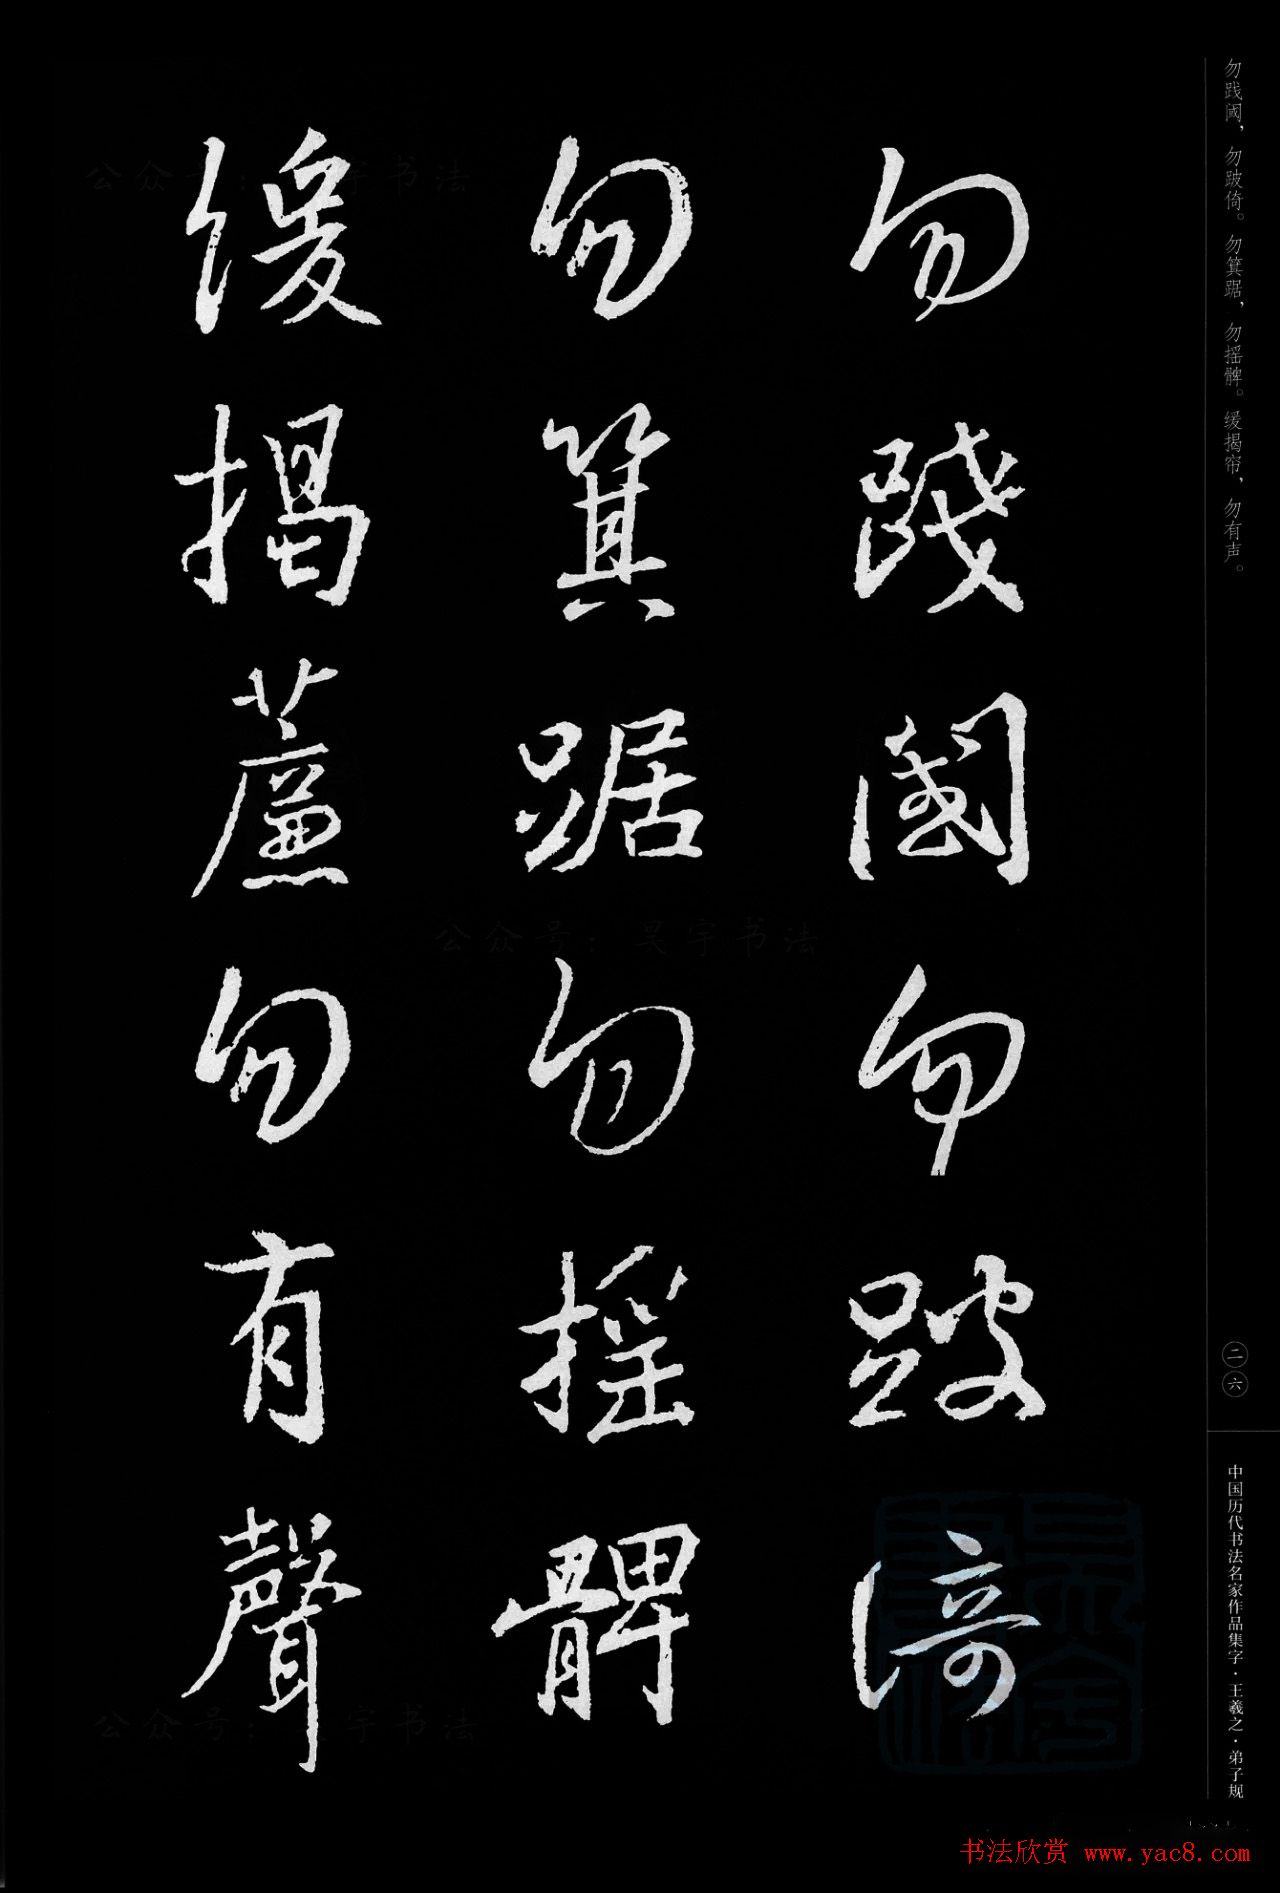 勿践阈，勿跛倚。勿箕踞，勿摇髀。缓揭帘，勿有声。
勿踐閾勿跛倚
勿箕踞勿摇髀
緩揭薕勿有聲
二六
中国历代书法名家作品集字·王羲之·弟子规
公众号：吴宇书法
书法欣赏 www.yac8.com